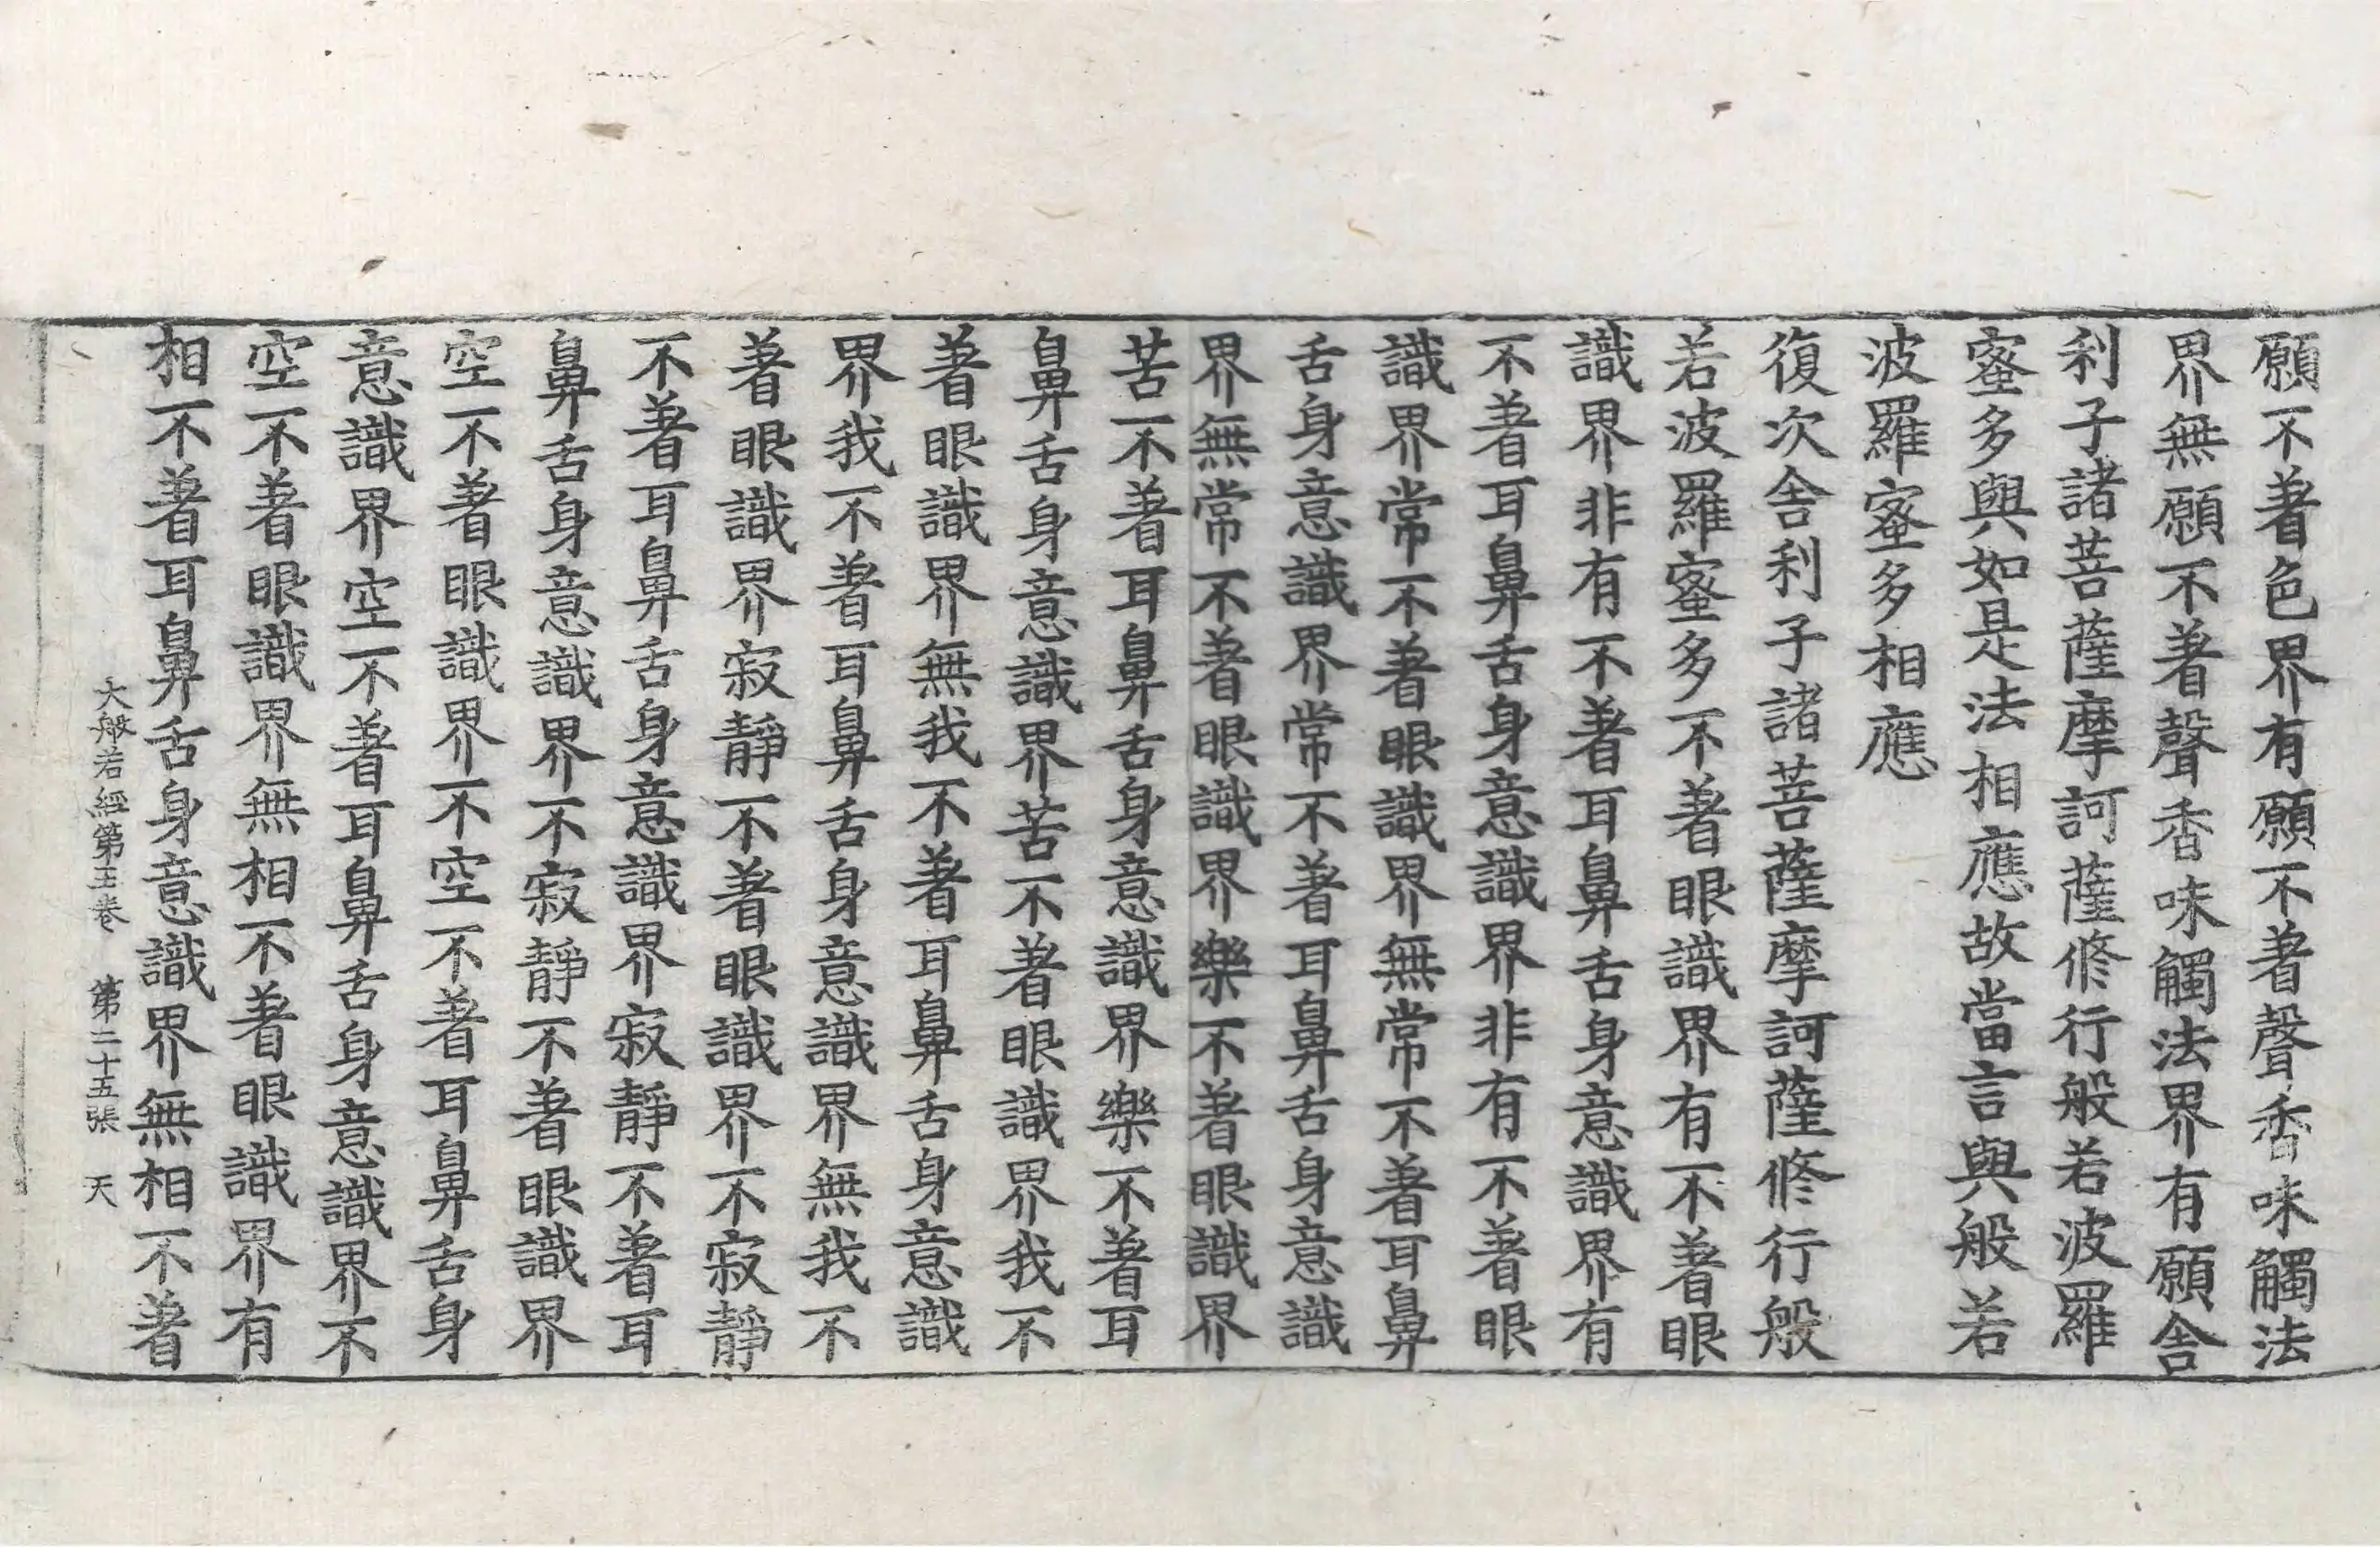 願不著色界有願不著聲香味觸法
界無願不著聲香味觸法界有願舍
利子諸菩薩摩訶薩修行般若波羅
蜜多與如是法相應故當言與般若
波羅蜜多相應
復次舍利子諸菩薩摩訶薩修行般
若波羅蜜多不著眼識界有不著眼
識界非有不著耳鼻舌身意識界有
不著耳鼻舌身意識界非有不著眼
識界常不著眼識界無常不著耳鼻
舌身意識界常不著耳鼻舌身意識
界無常不著眼識界樂不著眼識界
苦不著耳鼻舌身意識界樂不著耳
鼻舌身意識界苦不著眼識界我不
著眼識界無我不著耳鼻舌身意識
界我不著耳鼻舌身意識界無我不
著眼識界寂靜不著眼識界不寂靜
不著耳鼻舌身意識界寂靜不著耳
鼻舌身意識界不寂靜不著眼識界
空不著眼識界不空不著耳鼻舌身
意識界空不著耳鼻舌身意識界不
空不著眼識界無相不著眼識界有
相不著耳鼻舌身意識界無相不著
大般若經第五卷 第二十五張 天